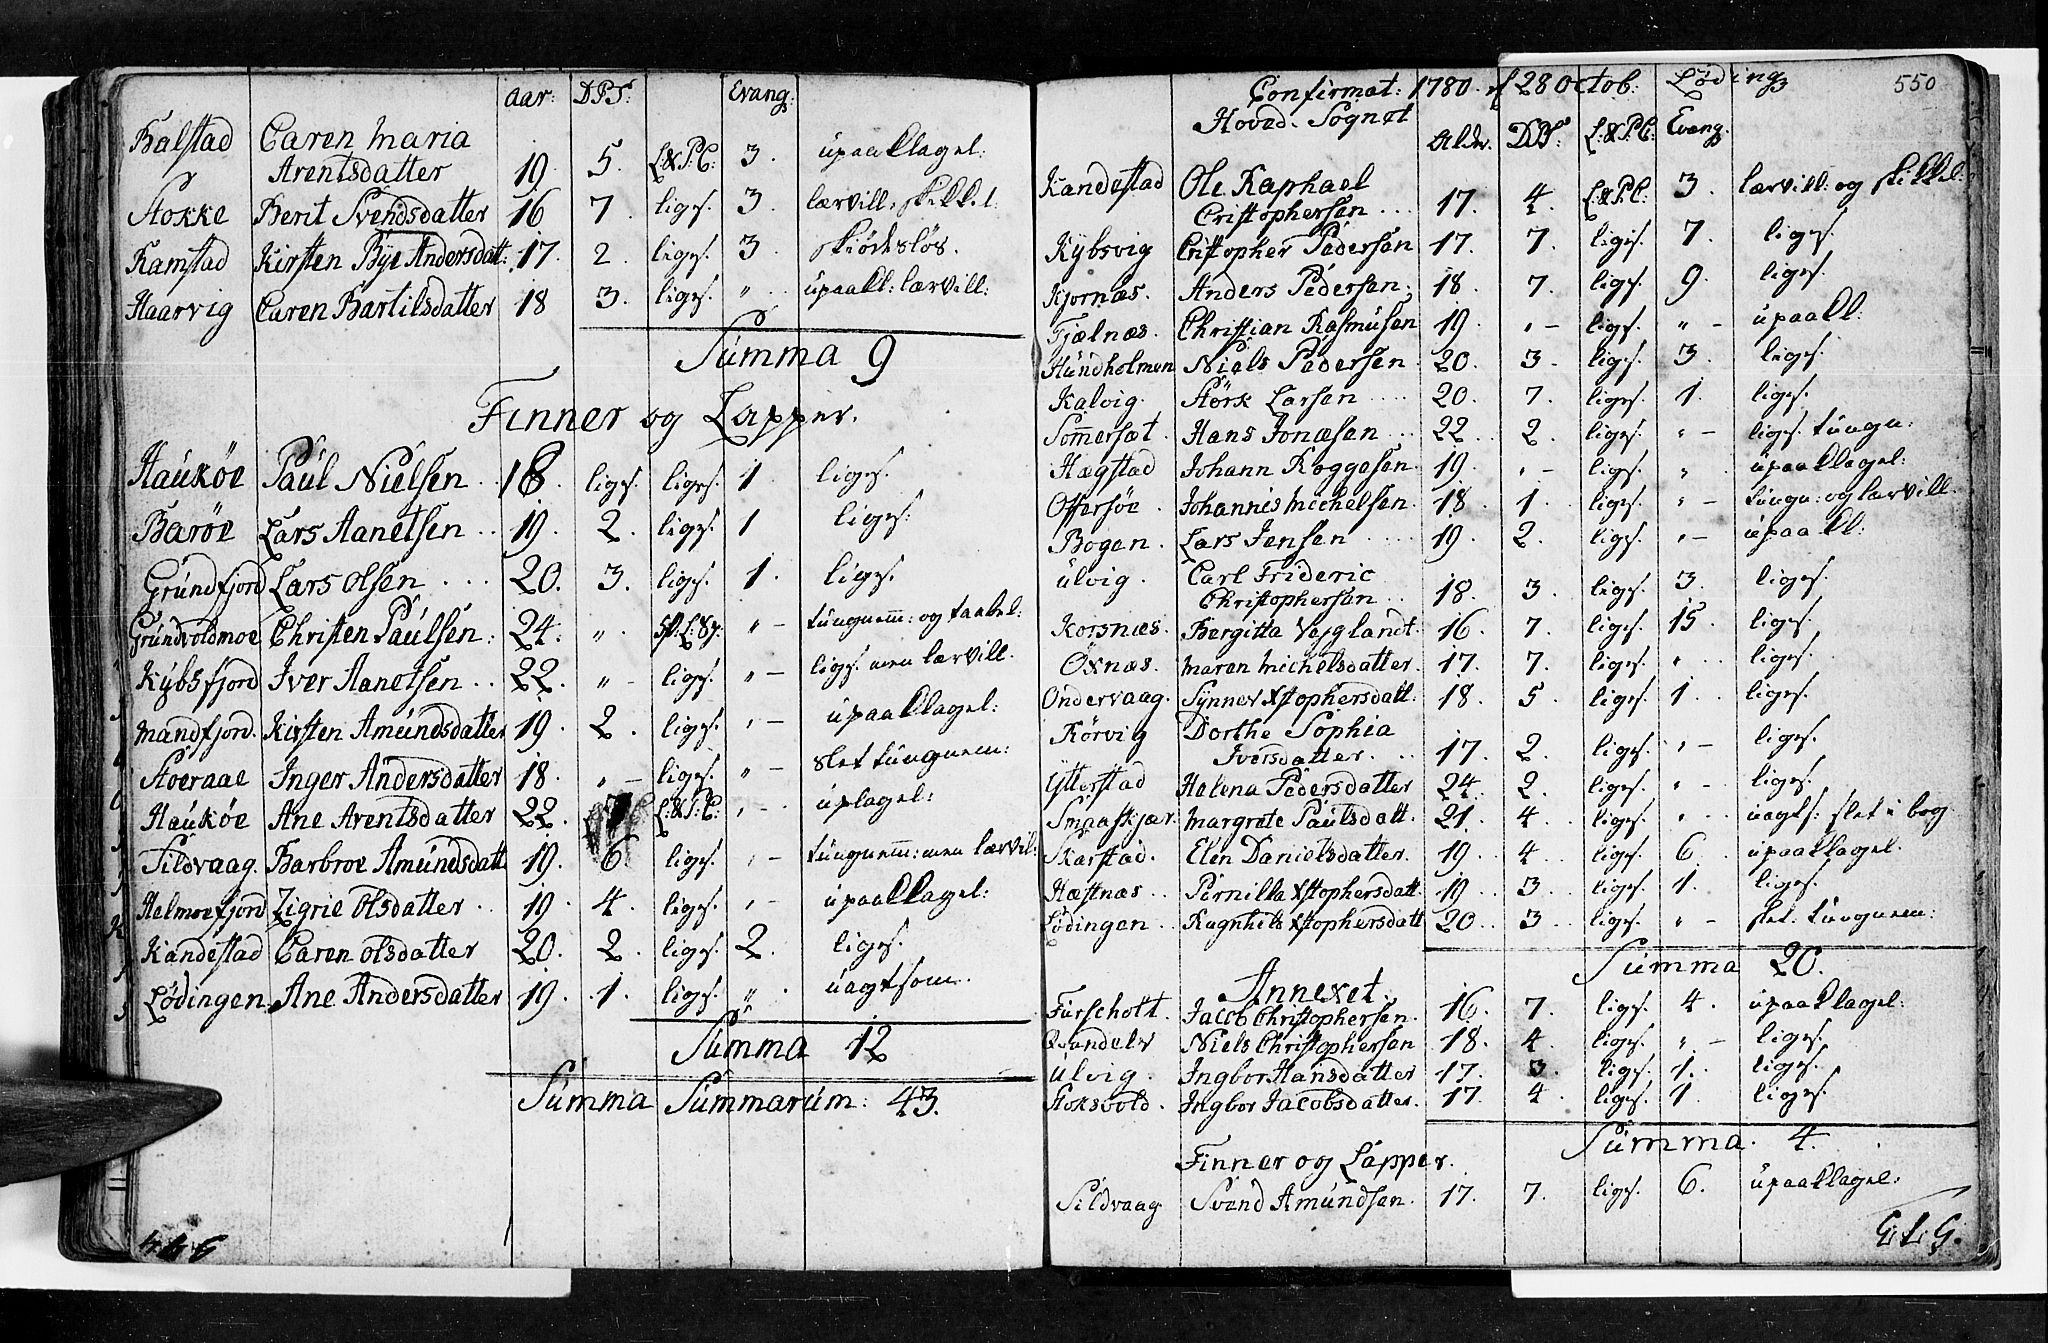 Aar: DPS: Evang:
Balstad Caren Maria
Arentsdatter 19 5. L:&P:C: 3. upaaklagel:
Stokke Berit Svendsdatter 16 7. liges. 3. lærvill. skikkel:
Ramstad Kirsten Bye Andersdatt: 17. 2. liges. 3. skiødesløs.
Haarvig Caren Bartilsdatter 18 3. liges. " upaakl: lærvill:
Summa 9
Finner og Lapper.
Haukøe Paul Nielsen 18. liges. liges. 1 liges.
Barøe Lars Aanetsen 19. 2. liges. 1 liges:
Grundfjord Lars Olsen 20. 3. liges. 1. liges.
Grundvoldmoe Christen Paulsen: 24. " " – tungnem: og taabel:
Kybsfjord Iver Aanetsen 22. " – liges. " – liges. men lærvill.
Mandfjord. Kirsten Amundsdatter 19. 2. liges. " – upaaklagel:
Stoeraae Inger Andersdatter 18. " – liges. " – slet tungnem:
Haukøe Ane Arentsdatter 22. L:&P:C: " – uplagel:
Sildvaag. Barbroe Amundsdatt 19. 6. liges. " – tungnem: men lærvil:
Helmoefjord Zigrie Olsdatter 19. 4. liges. " – upaaklagel:
Kandestad Caren Olsdatter 20. 2. liges. 2. liges.
Lødingen. Ane Andersdatter 19. 1. liges. " uagtsom.
Summa 12
Summa Summarum: 43.
Confirmat: 1780. d 28 Octob: Løding 550
Hoved-Sognet Alder. DPS: L:&P:C: Evang
Kandestad Ole Raphael
Cristophersen 17. 4. L:&P:C: 3. lærvill: og skikkel:
Kybsvig Cristopher Pedersen 17. 7. liges. 7. liges.
Kjornæs. Anders Pedersen. 18. 7. liges. 9. liges.
Fjelnæs. Christian Rasmusen 19. " – liges. " – upaakl:
Hundholmen Niels Pedersen 20. 3. liges. 3. liges.
Kalvig. Størk Larsen 20. 7. liges. 1. liges.
Sommersæt. Hans Jonæsen 22. 2. liges. " – liges. tungn:
Hægstad Johann Roggesen. 19. " – liges. " upaaklagel:
Offersøe Johannis Michelsen 18. 1. liges. " – tungn: og lærvill.
Bogen. Lars Jensen 19. 2. liges. " – upaakl:
Ulvig. Carl Frideric
Christophersen 18. 3. liges. 3. liges.
Korsnæs. Bergitta Vejglandt. 16. 7. liges. 15. liges.
Øxnæs. Maren Michelsdatter. 17. 7. liges. " liges.
Ondervaag. Synnev Xstophersdatt: 18. 5. liges. 1. liges.
Rørvig Dorthe Sophia
Iversdatter 17. 2. liges. " – liges.
Ytterstad Helena Pedersdatter 24. 2. liges. " – liges.
Smaaskjær. Margrete Paulsdatt. 21. 4. liges. " uagts: slet i bog
Skarstad. Elen Danielsdatter. 19. 4. liges. 6. upaaklagel.
Hæstnæs Pernilla Xstophersdatt. 19. 3. liges. 1. liges.
Lødingen Ragnhils Xstophersdatt 20. 3. liges. " – slet. tungnem:
Summa 20.
Annexet.
Furscholt. Jacob Christophersen. 16. 7. liges. 4. upaaklagel:
Niels Christophersen 18. 4. liges. " – liges.
Ulvig. Ingbor Hansdatter 17. 3. liges. 1. liges.
Stoksvold. Ingbor Jacobsdatter. 17. 4. liges. 1. liges.
Summa. 4.
Finner og Lapper.
Sildvaag Svend Amundsen. 17. 7. liges. 6. upaaklagel: